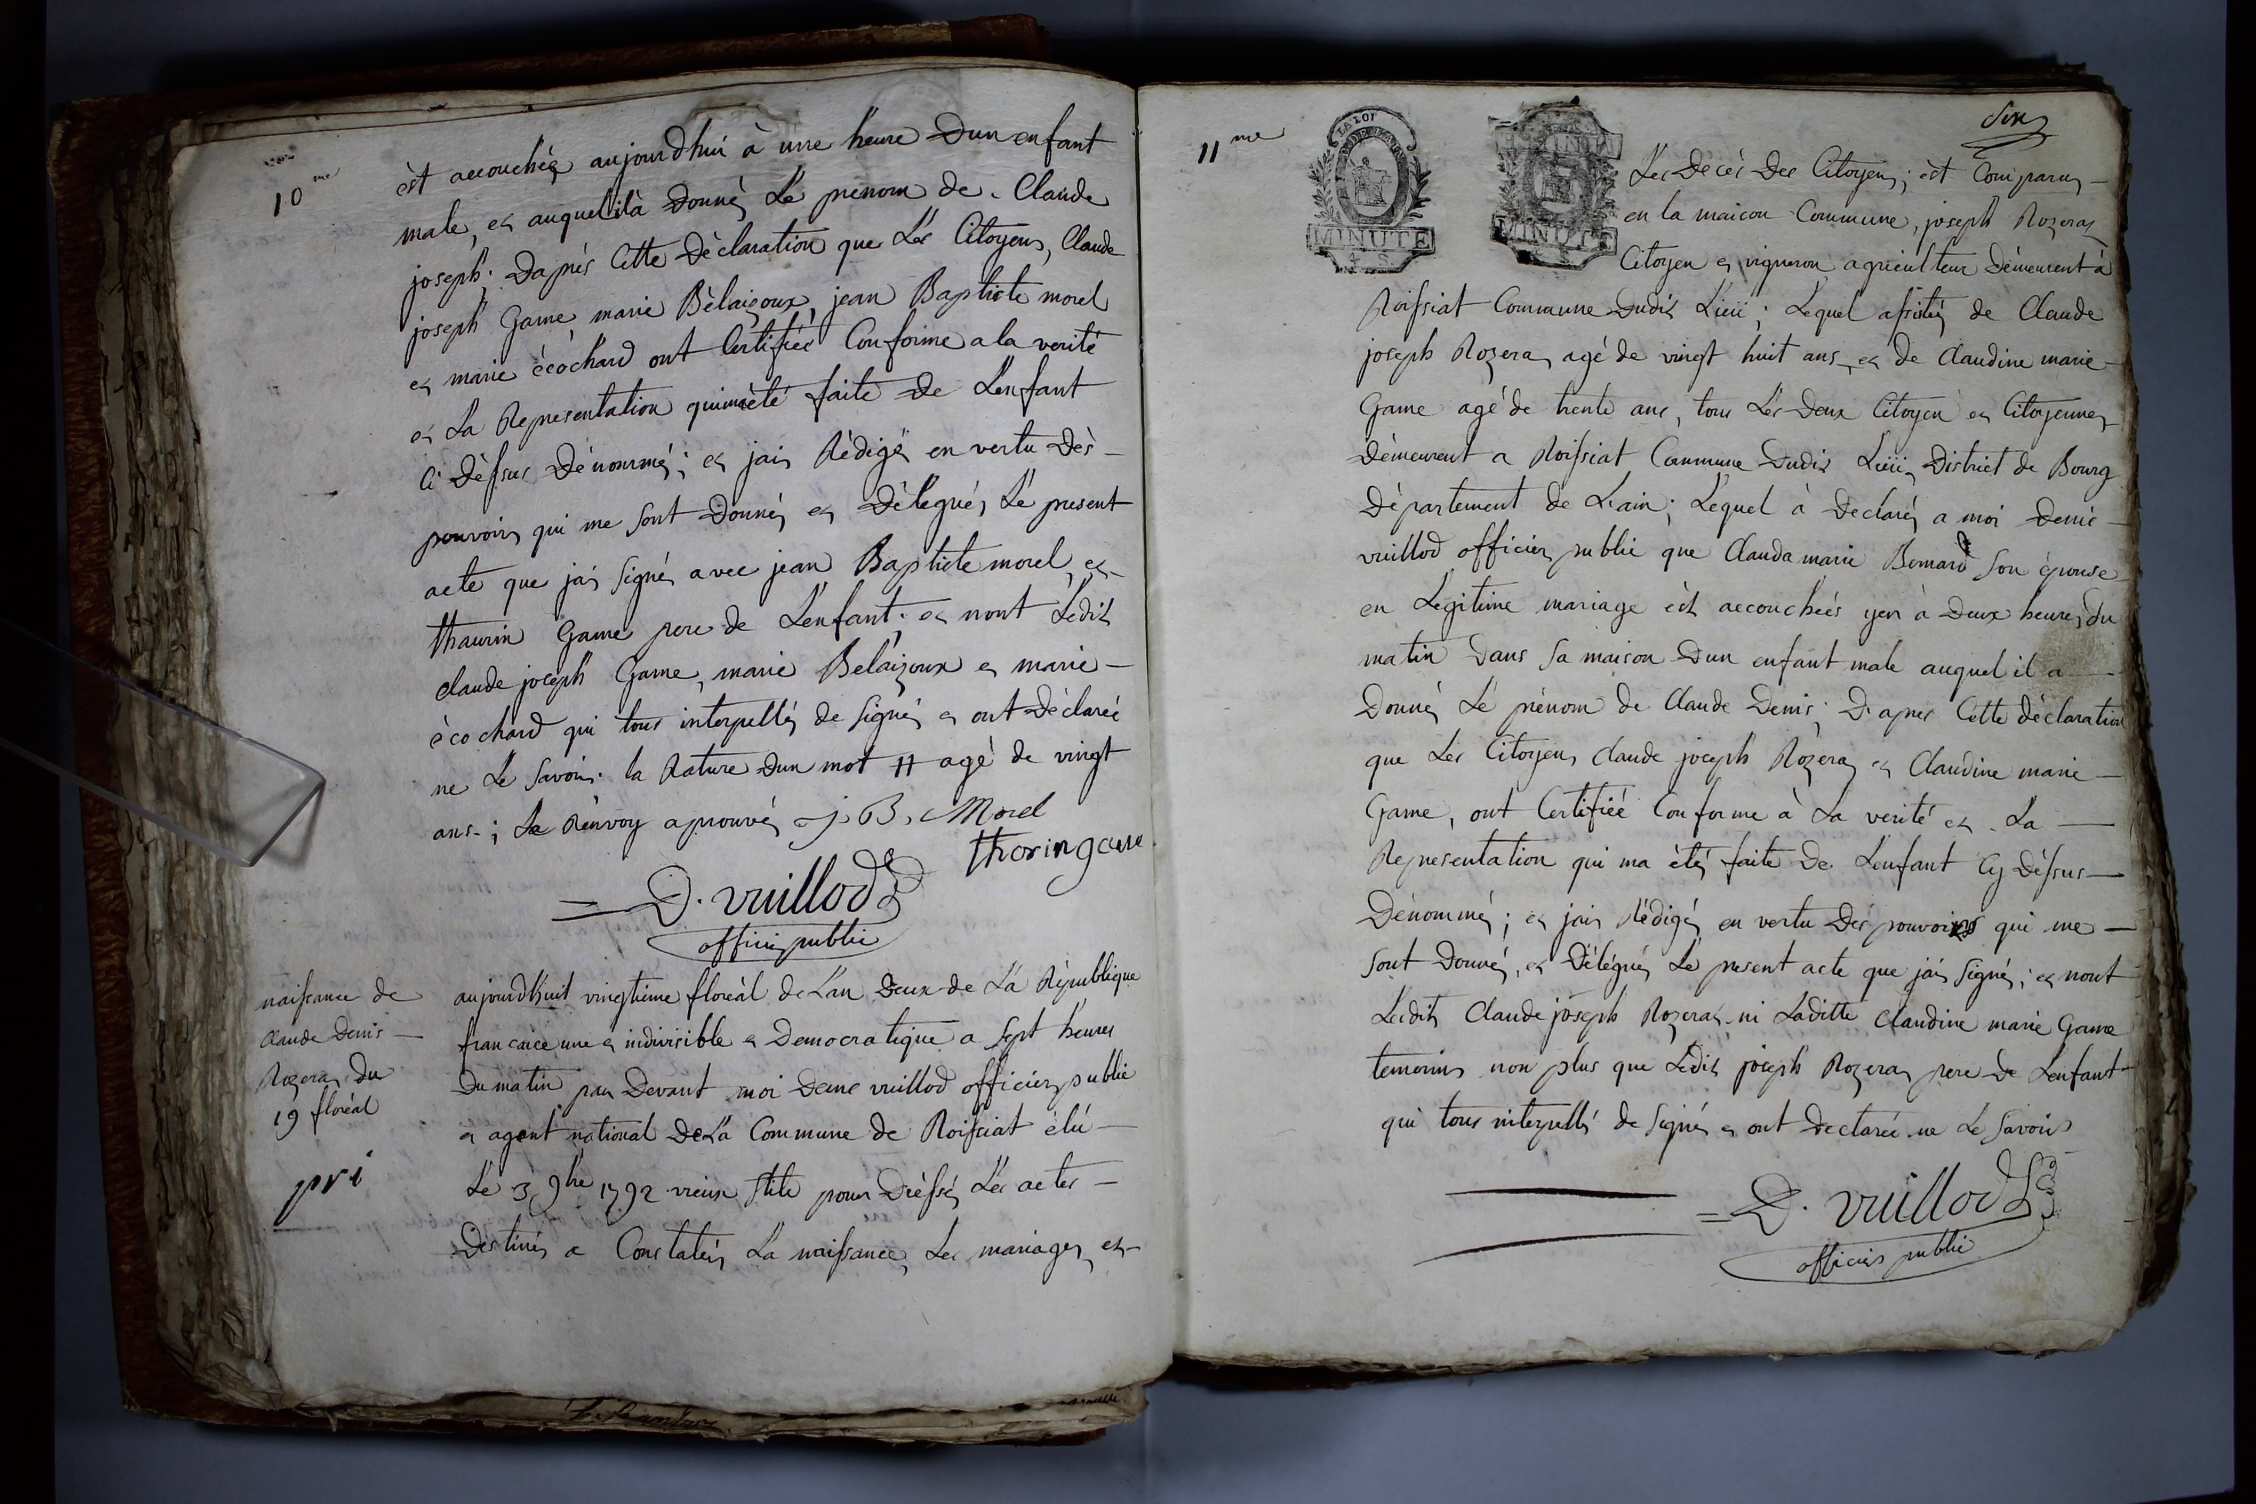 10me
èst accouchéé aujourdhui à une heure Dun enfant
male, et auquel ila Donné Lé prenom de Claude
joseph; Daprés Cette Déclaration que Lés Citoyens, Claude
joseph Game, marie Bèlaizoux, jean Baptiste morel
et marie écochard ont Certifiéé Conforme a la verité
et La Representation quimaèté faite De Lenfant
Ci Dessus Dénommé; et jais Rédigé en vertu Dès
pouvoirs qui me sont Donnés et Délégués Lé present
acte que jai signé avec jean Baptiste morel, et
thaurin Game pere de Lenfant. et nont Lédit
claude joseph Game, marie Belaizoux et marie
écochard qui tous interpellés de signés et ont Déclaréé
ne Le savoir. la Rature Dun mot # agé de vingt
ans; Le Renvoy aprouvés j. B. Morel
thoringame
D. vuillod
officier public
naissance de
Claude Denis
Rozera, du
19 floréal
pri
aujourdhuit vingtieme floréàl de Lan Deux de La République
francaice une et indivisible et Democratique a sept heures
Du matin par Devant moi Denis vuillod officier public
et agent national De La Commune de Roissiat élú
Lé 3 9bre 1792 vieux stile pour Dréssé Lés actes
Destinés a Constatér La naissance, Les mariages et
11me
six
LA LOI
MINUTE
MINUTE
Les Décès Des Citoyens; èst Comparus
en la maison Commune, joseph Rozeraz
Citoyen et vigneron agriculteur Démeurent à
Roissiat Commune Dudit Lieu; Lequel assistés de Claude
joseph Rozera, agé de vingt huit ans, et de Claudine marie
Game agé de trente ans, tous Lés Deux Citoyen et Citoyennes
Démeurent a Roissiat Commune Dudit Lieu, District de Bourg
Département de Lain; Léquel à Declarés a moi Denis
vuillod officier public que Clauda marie Bomard son épouse
en Légitime mariage èst accouchéés yer à Deux heures du
matin Dans sa maison Dun enfant male auquel il a
Donnés Lé prénom de Claude Denis; D'apres Cette déclaration
que Les Citoyens Claude joseph Rozera, et Claudine marie
Game, ont Certifiéé Conforme à La verité et La
Representation qui ma été faite De Lenfant Cy Dessus
Dénommés; et jais Rédigés en vertu Dés pouvoires qui me
sont Donnés, et Délégués Le present acte que jais signés; et nont
Lesdits Claude joseph Rozeraz ni Laditte Claudine marie Game
temoins non plus que Lédit joseph Rozera, pere de Lenfant
qui tous interpellés de signés et ont Declaréé ne Le savoir
D. vuillod
officier public